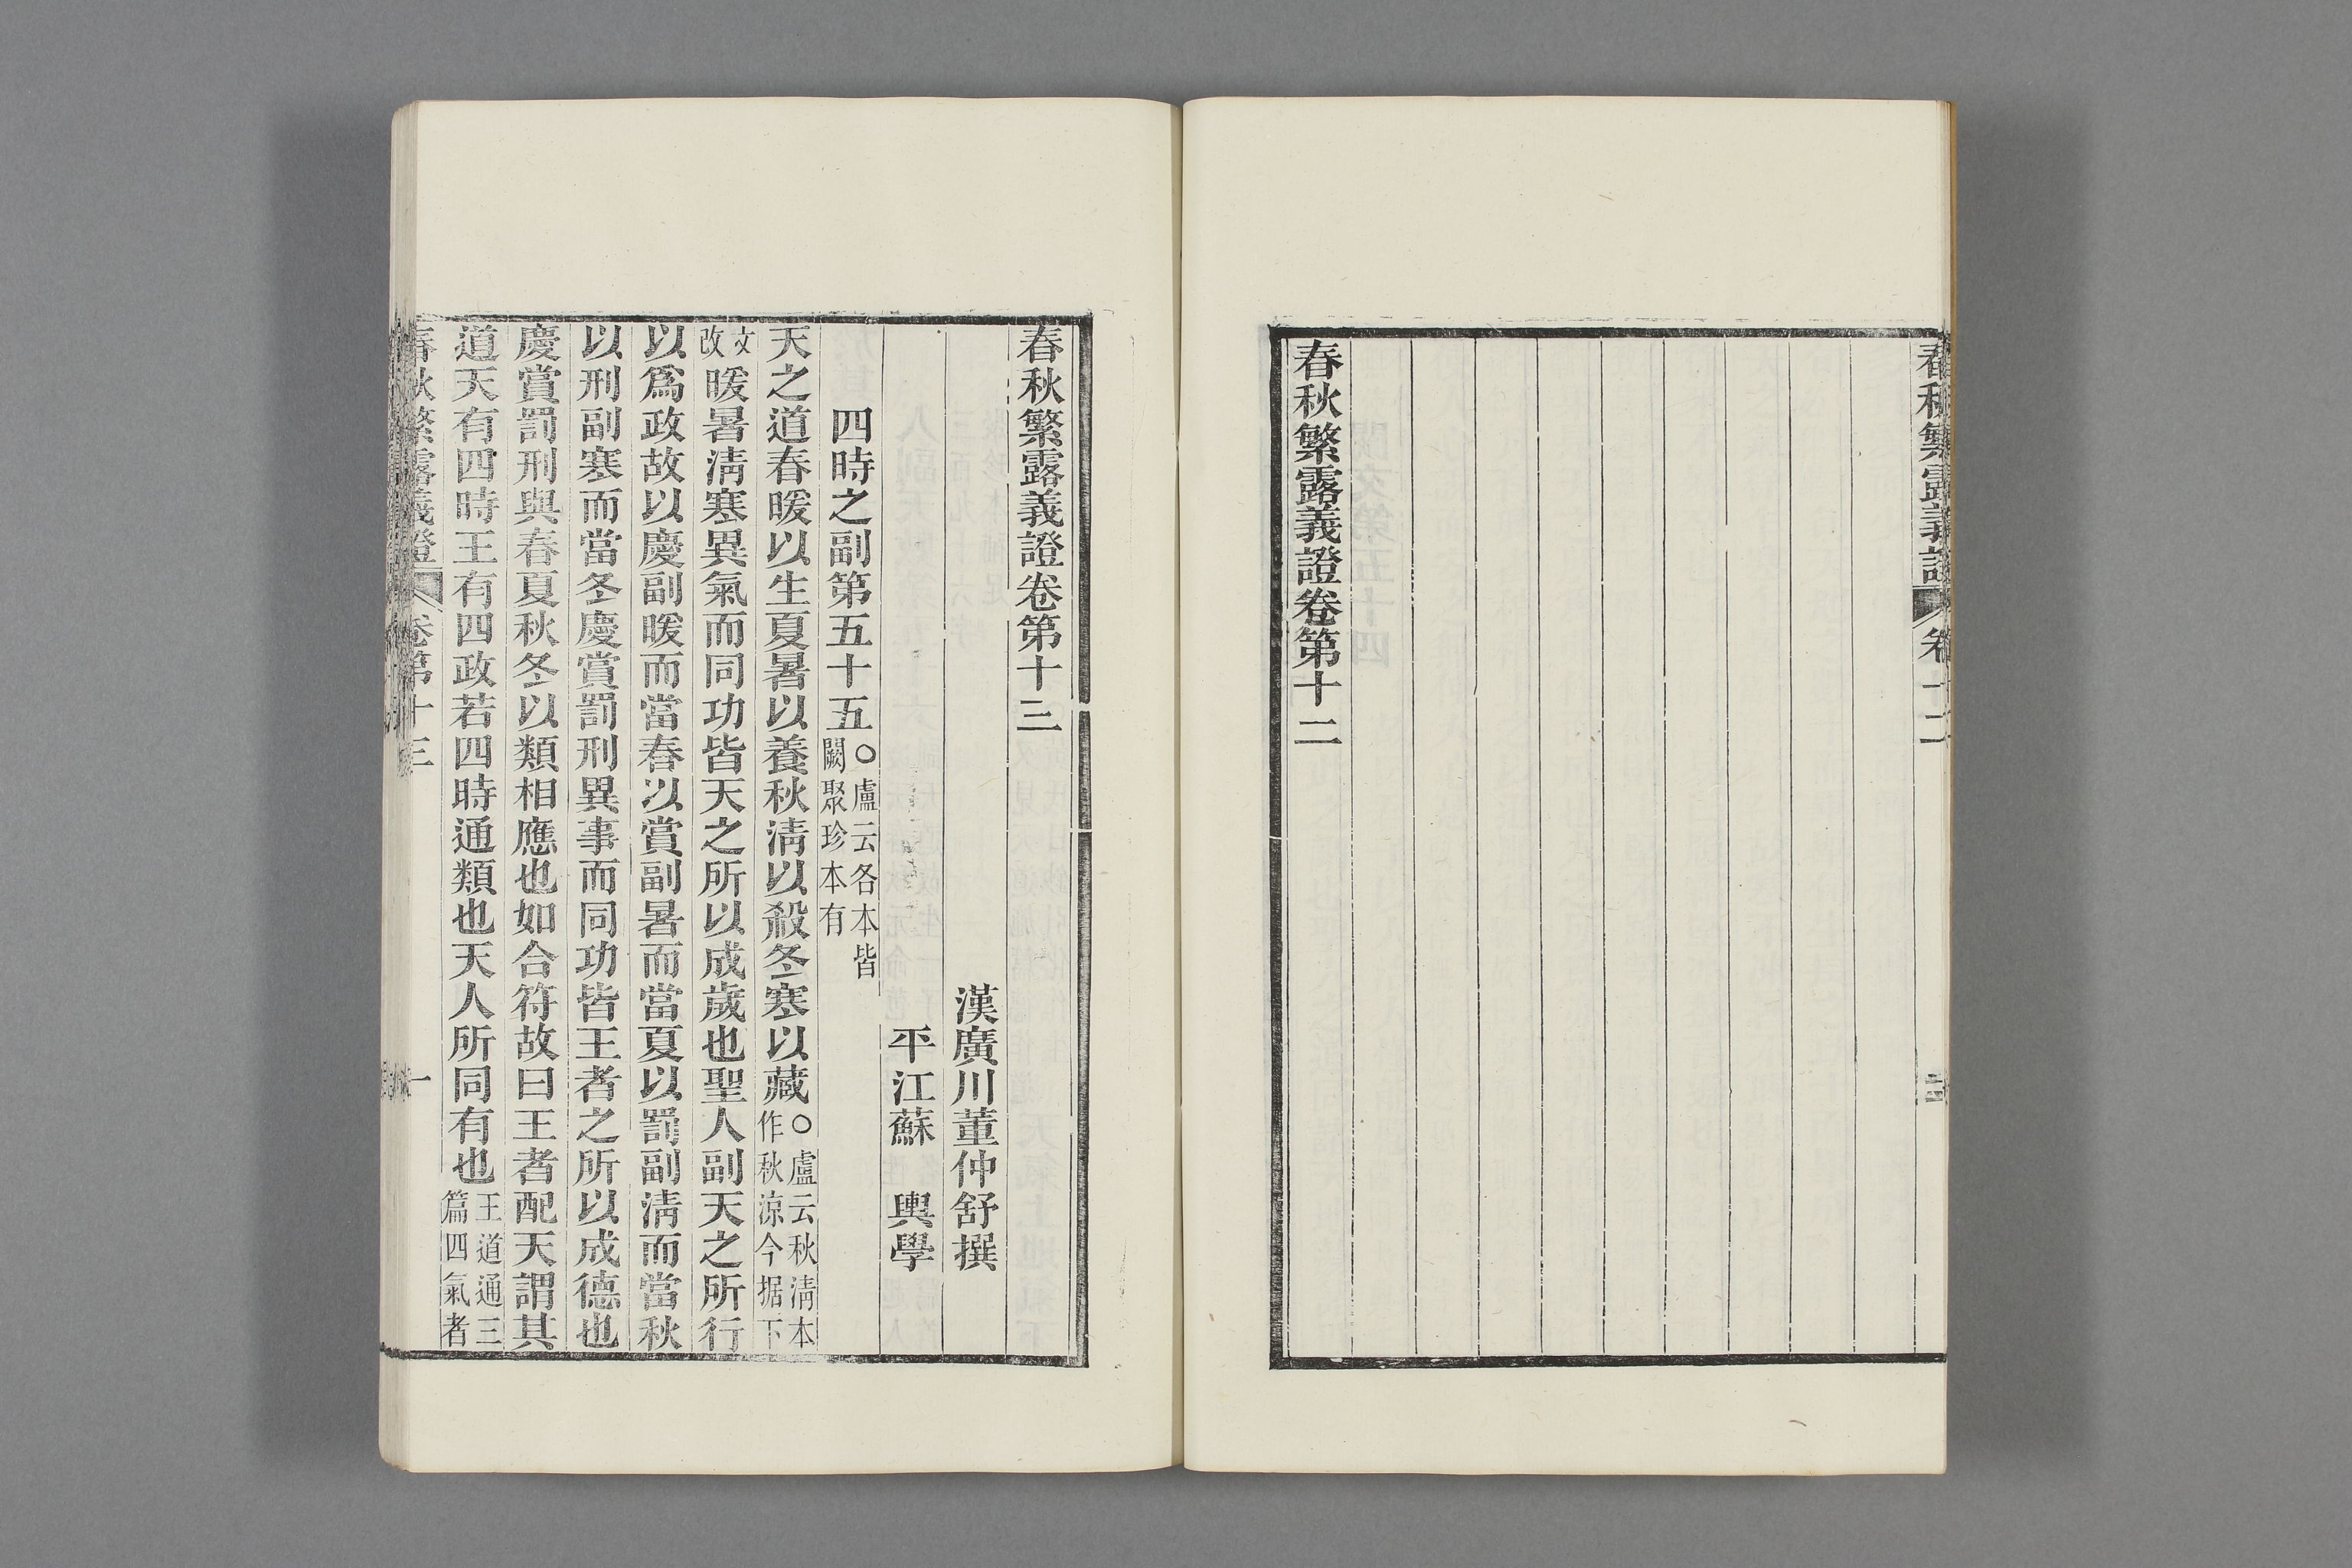 春秋繁露義證 卷十二
春秋繁露義證卷第十二
春秋繁露義證卷第十三
漢廣川董仲舒撰
平江蘇 輿學
四時之副第五十五○盧云各本皆闕聚珍本有
天之道春暖以生夏暑以養秋淸以殺冬寒以藏○盧云秋淸本作秋涼今据下
文改暖暑淸寒異氣而同功皆天之所以成歲也聖人副天之所行
以爲政故以慶副暖而當春以賞副暑而當夏以罰副淸而當秋
以刑副寒而當冬慶賞罰刑異事而同功皆王者之所以成德也
慶賞罰刑與春夏秋冬以類相應也如合符故曰王者配天謂其
道天有四時王有四政若四時通類也天人所同有也王道通三篇四氣者
春秋繁露義證 卷第十三 一